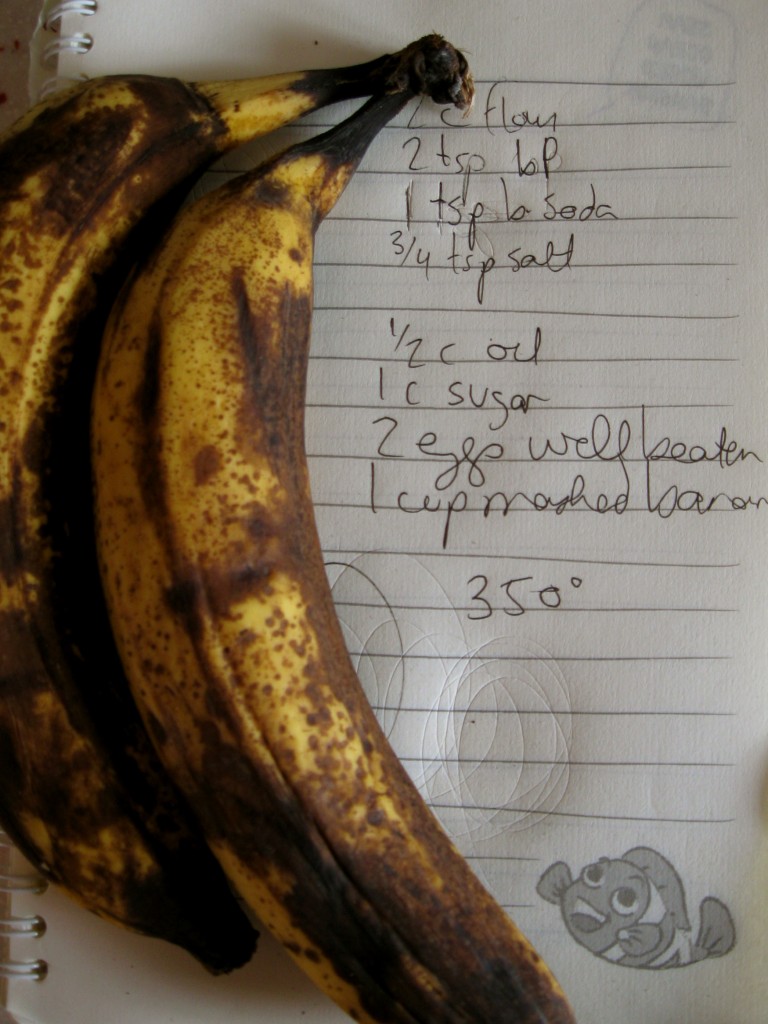 2 c flour
2 tsp bP
1 tsp b Soda
3/4 tsp salt
1/2 c oil
1 c sugar
2 eggs well beaten
1 cup mashed banan
350°